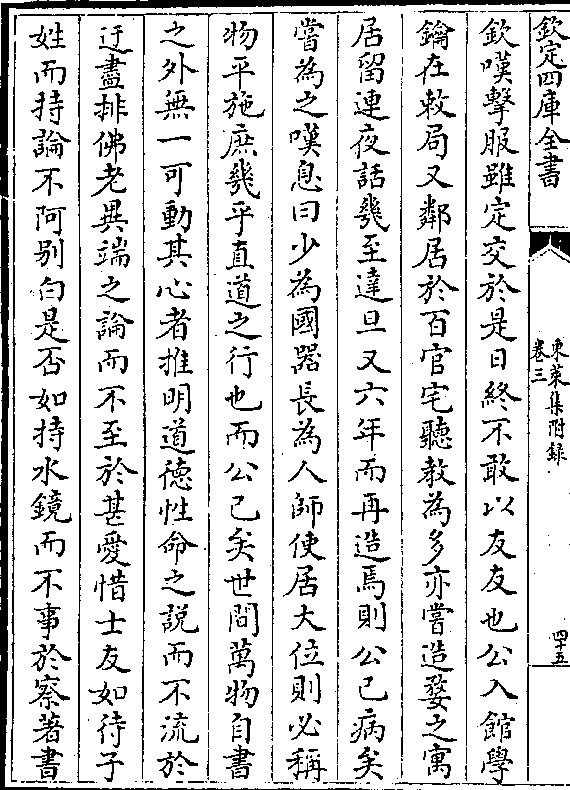 欽定四庫全書
東萊集附録
卷三
四十五
欽嘆擊服雖定交於是日終不敢以友友也公入館學
鑰在敕局又鄰居於百官宅聽教為多亦嘗造婺之寓
居留連夜話幾至達旦又六年而再造焉則公已病矣
嘗為之嘆息曰少為國器長為人師使居大位則必稱
物平施庶幾乎直道之行也而公已矣世間萬物自書
之外無一可動其心者推明道德性命之說而不流於
迂盡排佛老異端之論而不至於甚愛惜士友如待子
姓而持論不阿别白是否如持水鏡而不事於察著書